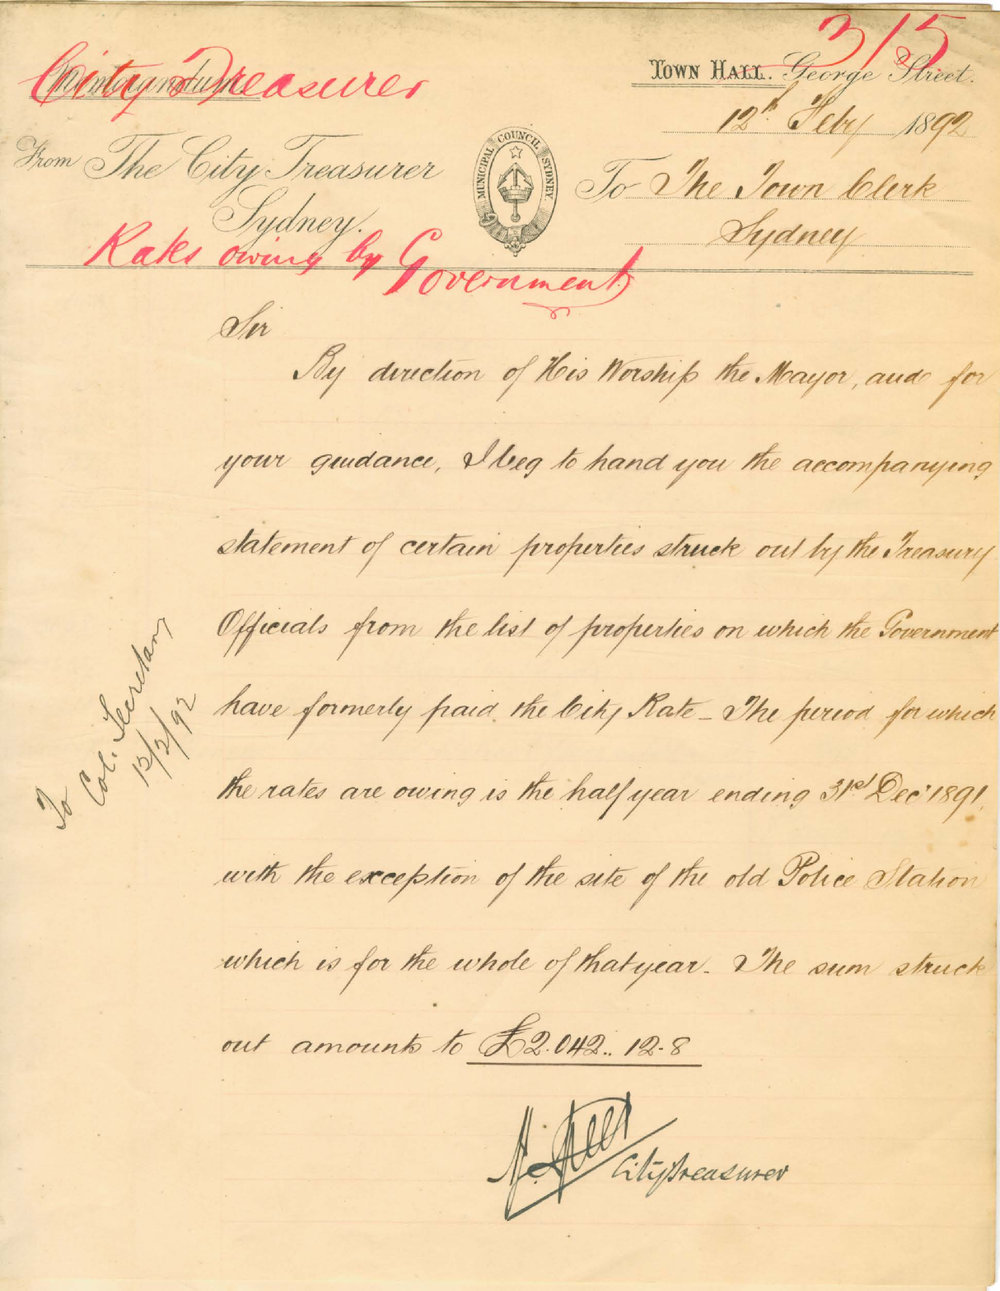 315
City Treasurer
Memorandum
TOWN HALL. George Street.
12th Feby 1892
From The City Treasurer
Sydney.
MUNICIPAL COUNCIL SYDNEY
To The Town Clerk
Sydney
Rates owing by Government.
Sir
By direction of His Worship the Mayor, and for
your guidance, I beg to hand you the accompanying
statement of certain properties struck out by the Treasury
Officials from the list of properties on which the Government
have formerly paid the City Rate _ The period for which
the rates are owing is the half year ending 31st Decr 1891,
with the exception of the site of the old Police Station
which is for the whole of that year. The sum struck
out amounts to £2.042..12.8
City Treasurer
To Col. Secretary
12/2/92